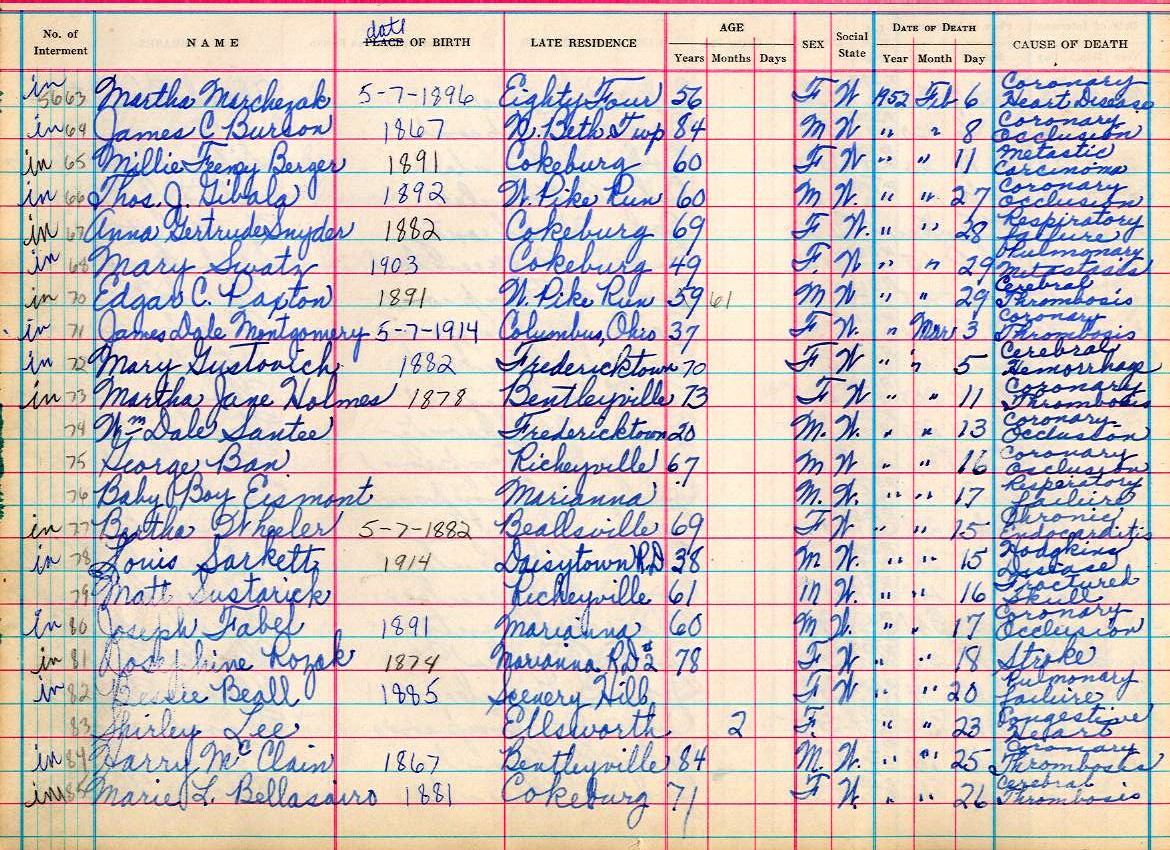 No. of Interment NAME date PLACE OF BIRTH LATE RESIDENCE AGE Years Months Days SEX Social State DATE OF DEATH Year Month Day CAUSE OF DEATH
in 5663 Martha Marchezak 5-7-1896 Eighty Four 56 F W 1952 Feb 6 Coronary Heart Disease
in 64 James C. Burson 1867 W. Beth Twp 84 M W " " 8 Coronary Occlusion
in 65 Millie Feeny Berger 1891 Cokeburg 60 F W " " 11 Metastic Carcinoma
in 66 Thos. J. Gibala 1892 W. Pike Run 60 M W. " " 27 Coronary Occlusion
in 67 Anna Gertrude Snyder 1882 Cokeburg 69 F W. " " 28 Respiratory Failure
in 68 Mary Swatz 1903 Cokeburg 49 F. W " " 29 Pulmonary Metastasis
in 70 Edgar C. Paxton 1891 W. Pike Run 59 61 M W " " 29 Cerebral Thrombosis
in 71 James Dale Montgomery 5-7-1914 Columbus, Ohio 37 F W. " Mar 3 Coronary Thrombosis
in 72 Mary Gustovich 1882 Fredericktown 70 F W " " 5 Cerebral Hemorrhage
in 73 Martha Jane Holmes 1878 Bentleyville 73 F W " " 11 Coronary Thrombosis
74 Wm Dale Santee Fredericktown 20 M. W. " " 13 Coronary Occlusion
75 George Ban Richeyville 67 M W " " 16 Coronary Occlusion
76 Baby Boy Eismont Marianna M. W. " " 17 Respiratory Failure
in 77 Bertha Wheeler 5-7-1882 Beallsville 69 F W " " 15 Chronic Endocarditis
in 78 Louis Sarkett 1914 Daisytown R.D 38 M W. " " 15 Hodgkins Disease
79 Matt Sustarick Richeyville 61 M W " " 16 Fractured Skull
in 80 Joseph Fabel 1891 Marianna 60 M W. " 17 Coronary Occlusion
in 81 Josephine Kozak 1874 Marianna R.D #2 78 F W " " 18 Stroke
in 82 Bessie Beall 1885 Scenery Hill F W " " 20 Pulmonary Failure
83 Shirley Lee Ellsworth 2 F. " " 23 Congestive Heart
in 84 Harry McClain 1867 Bentleyville 84 M. W. " " 25 Coronary Thrombosis
in 85 Marie L. Bellasairo 1881 Cokeburg 71 F W. " " 26 Cerebral Thrombosis